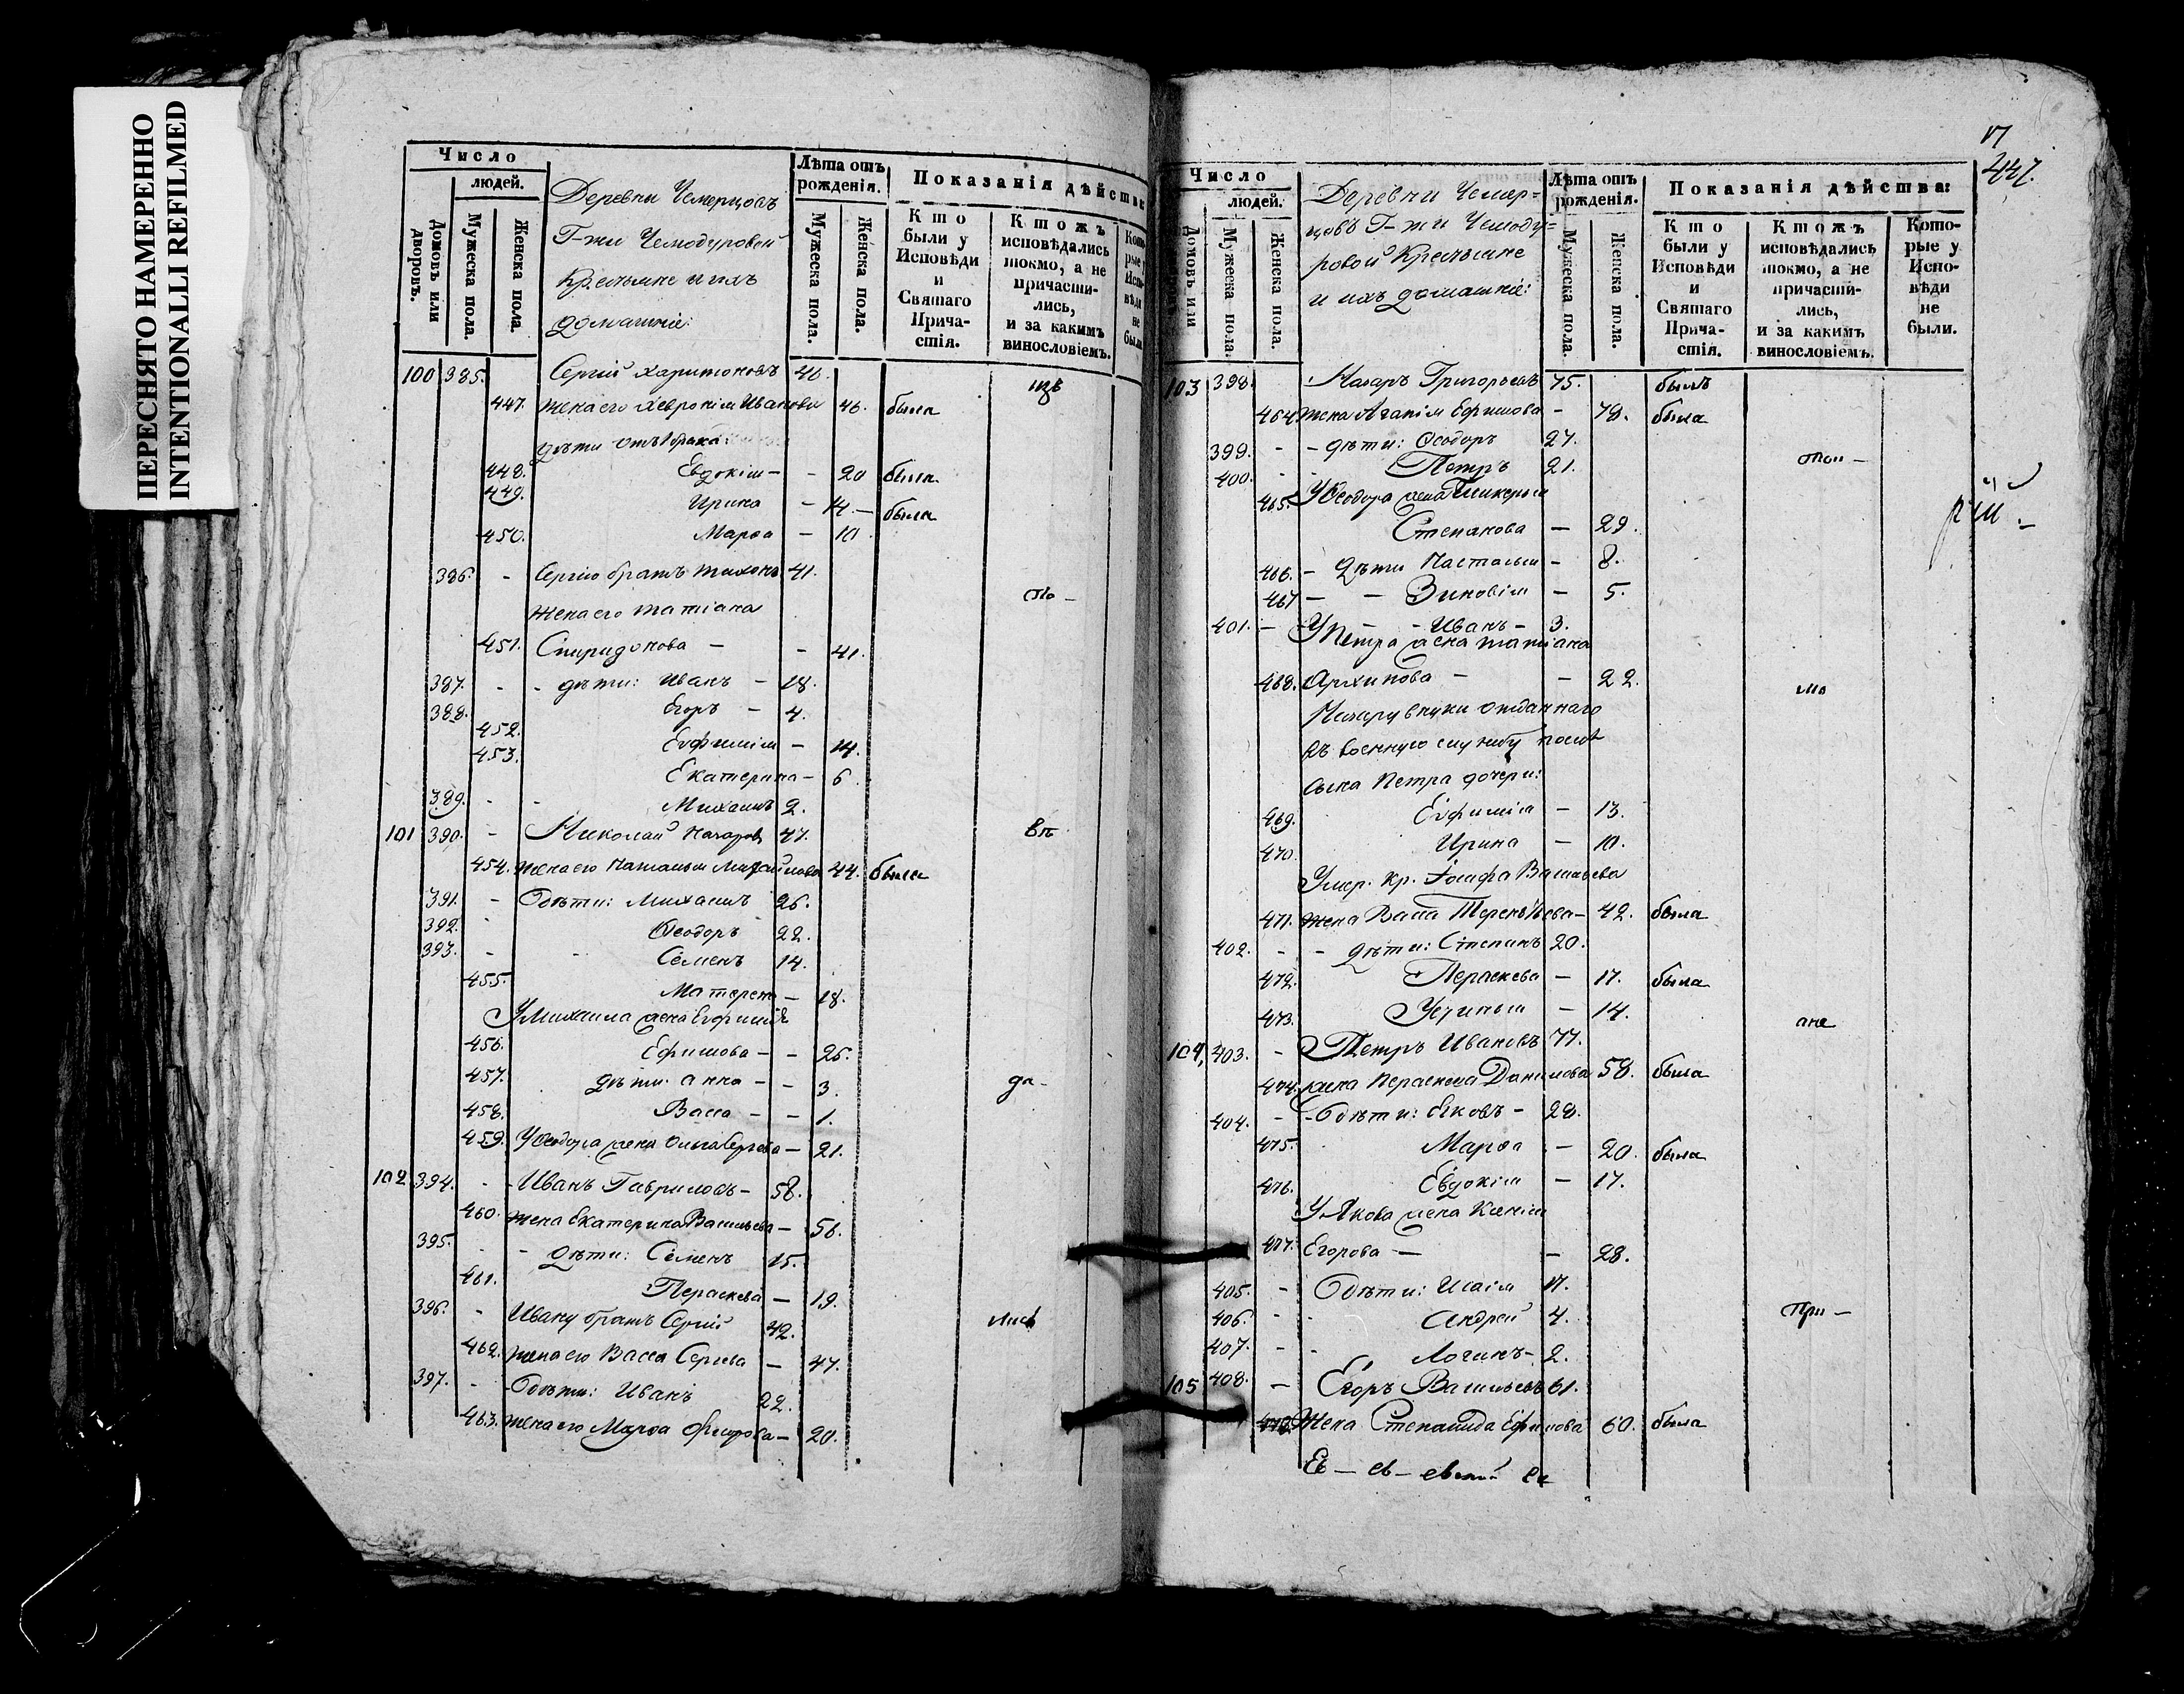 ПЕРЕСНЯТО НАМЕРЕННО
INTENTIONALLI REFILMED
Число
людей.
Домовъ или дворовъ.
Мужеска пола.
Женска пола.
Деревни Чемерцовъ
Г-жи Чемодуровой
Крестьяне и ихъ
домашніе:
Лѣта отъ рожденія.
Мужеска пола.
Женска пола.
Показанія дѣйства:
Кто были у Исповѣди и Святаго Причастія.
Ктожъ исповѣдались токмо, а не причастились, и за какимъ винословіемъ.
100 385. Сергій Харитоновъ 46.
447. жена его Хеврoнія Иванова 46. была
дѣти отъ 1 брака:
448. Евдокія – – 20 была
449. Ирина – 14. – была
450. Марѳа – 10
386. - Сергію братъ Тихонъ 41.
жена его Татіана
451. Спиридонова – – 41.
387. - - дѣти: Иванъ – 18.
388. Егоръ – 4.
452. Евфимія – 14.
453. Екатерина – 6
389. - - Михаилъ 2.
101 390. - Николай Назаровъ 47.
454. жена его Наталья Михайлова 44. была
391. - Ихъ дѣти: Михаилъ 26.
392. Ѳеодоръ 22.
393. - - Семенъ 14.
455. Матерена – 18.
У Михаила жена Евфимія
456. Ефимова – – 25.
457. дѣти: Анна – – 3.
458. Васса – – 1.
459. У Ѳеодора жена Ольга Сергѣева – 21.
102 394. - - Иванъ Гавриловъ – 58.
460. жена Екатерина Васильева – 56.
395. - - дѣти: Семенъ 15.
461. Пераскева – 19.
396. - Ивану братъ Сергій 42.
462. жена его Васса Сергѣева – 47.
397. - дѣти: Иванъ 22.
463. жена его Марѳа – 20.
447.
Число
людей.
Домовъ или
Мужеска пола.
Женска пола.
Деревни Чемер=
цовъ Г-жи Чемоду=
ровой Крестьяне
и ихъ домашніе:
Лѣта отъ рожденія.
Мужеска пола.
Женска пола.
Показанія дѣйства:
Кто были у Исповѣди и Святаго Причастія.
Ктожъ исповѣдались токмо, а не причастились, и за какимъ винословіемъ.
Которые у Исповѣди не были.
103 398. Назаръ Григорьевъ 75. былъ
464. жена Агапія Ефимова – 78. была
399. - - дѣти: Ѳеодоръ 27.
400. - - Петръ 21.
465. У Ѳеодора жена Гликерья
Степанова – 29.
466. – дѣти Настасья – 8.
467 – – Зиновія – 5.
401. – – – Иванъ – 3.
У Петра жена Татіана
468. Архипова – – 22.
Назару внуки отданнаго
въ военную службу послѣ
сына Петра дочери:
469. Евфимія – 13.
470. Ирина – 10.
Умер. кр. Іосифа Васильева
471. жена Васса Терентьева – 42. была
402. - - дѣти: Степанъ 20.
472. Пераскева – 17. была
473. Устинья – 14.
104, 403. - Петръ Ивановъ 77.
474. жена Пераскева Данилова 58. была
404. - - дѣти: Яковъ – 28.
475. Марѳа – 20. была
476. Евдокія – 17.
У Якова жена Ксенія
477. Егорова – – 28.
405. - дѣти: Исаія
406. - - Андрей 4.
407. - - Логинъ – 2.
105 408. – Егоръ Васильевъ 61.
478. Жена Степанида Ефимова 60. была